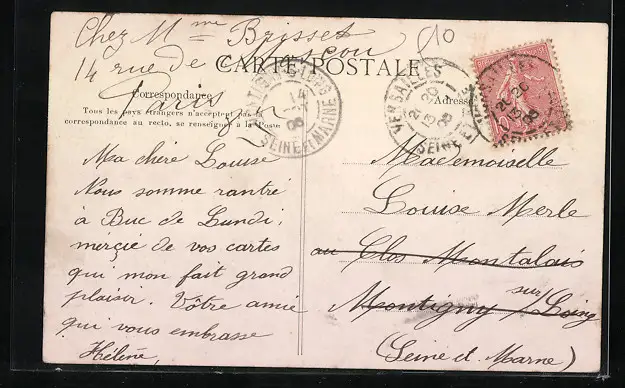 Chez Mme Brisset
14 rue de Moscou
Paris
CARTE POSTALE
Correspondance
Tous les pays étrangers n'acceptent pas la
correspondance au recto, se renseigner à la Poste
Adresse
Ma chère Louise
Nous somme rantré
à Buc de Lundi,
merçie de vos cartes
qui mon fait grand
plaisir. Vôtre amie
qui vous embrasse
Hélène,
Mademoiselle
Louise Merle
au Clos Montalais
Montigny sur Loing
(Seine et Marne)
SEINE ET MARNE
VERSAILLES